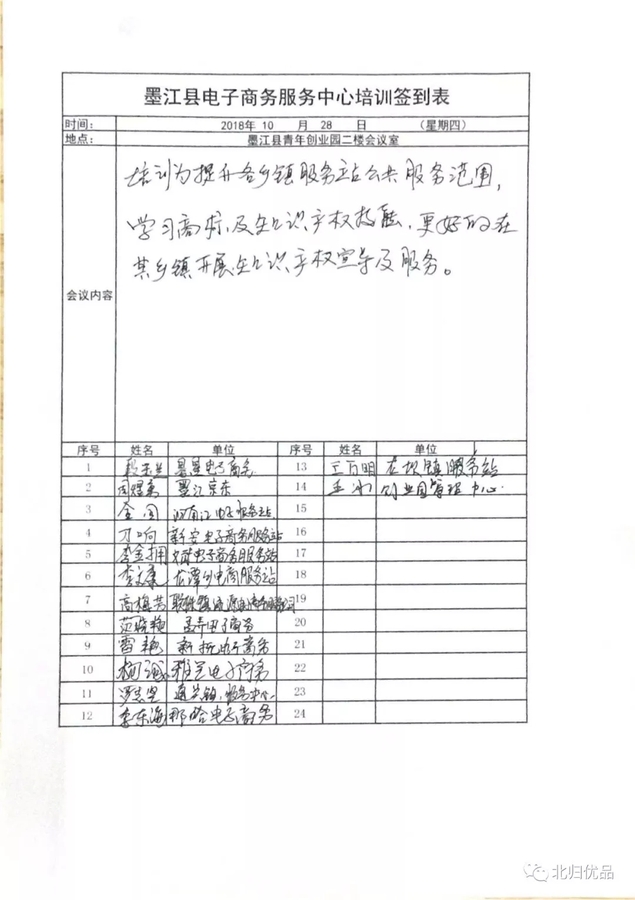 墨江县电子商务服务中心培训签到表
时间: 2018年 10 月 28 日 (星期四)
地点: 墨江县青年创业园二楼会议室
会议内容
培训为提升各乡镇服务站公共服务范围,
学习商标及知识产权技能,更好的在
其乡镇开展知识产权宣导及服务。
序号 姓名 单位 序号 姓名 单位
1 电子商务 13 王万明 坝镇服务站
2 墨江京东 14 创业园管理中心
3 服务站 15
4 刀响 新安电子商务服务站 16
5 李金拥 电子商务服务站 17
6 电商服务站 18
7 高梅芳 联珠镇 19
8 孟弄电子商务 20
9 雷艳 新抚电子商务 21
10 雅邑电子商务 22
11 通关镇服务中心 23
12 李东海 那哈电子商务 24
北归优品